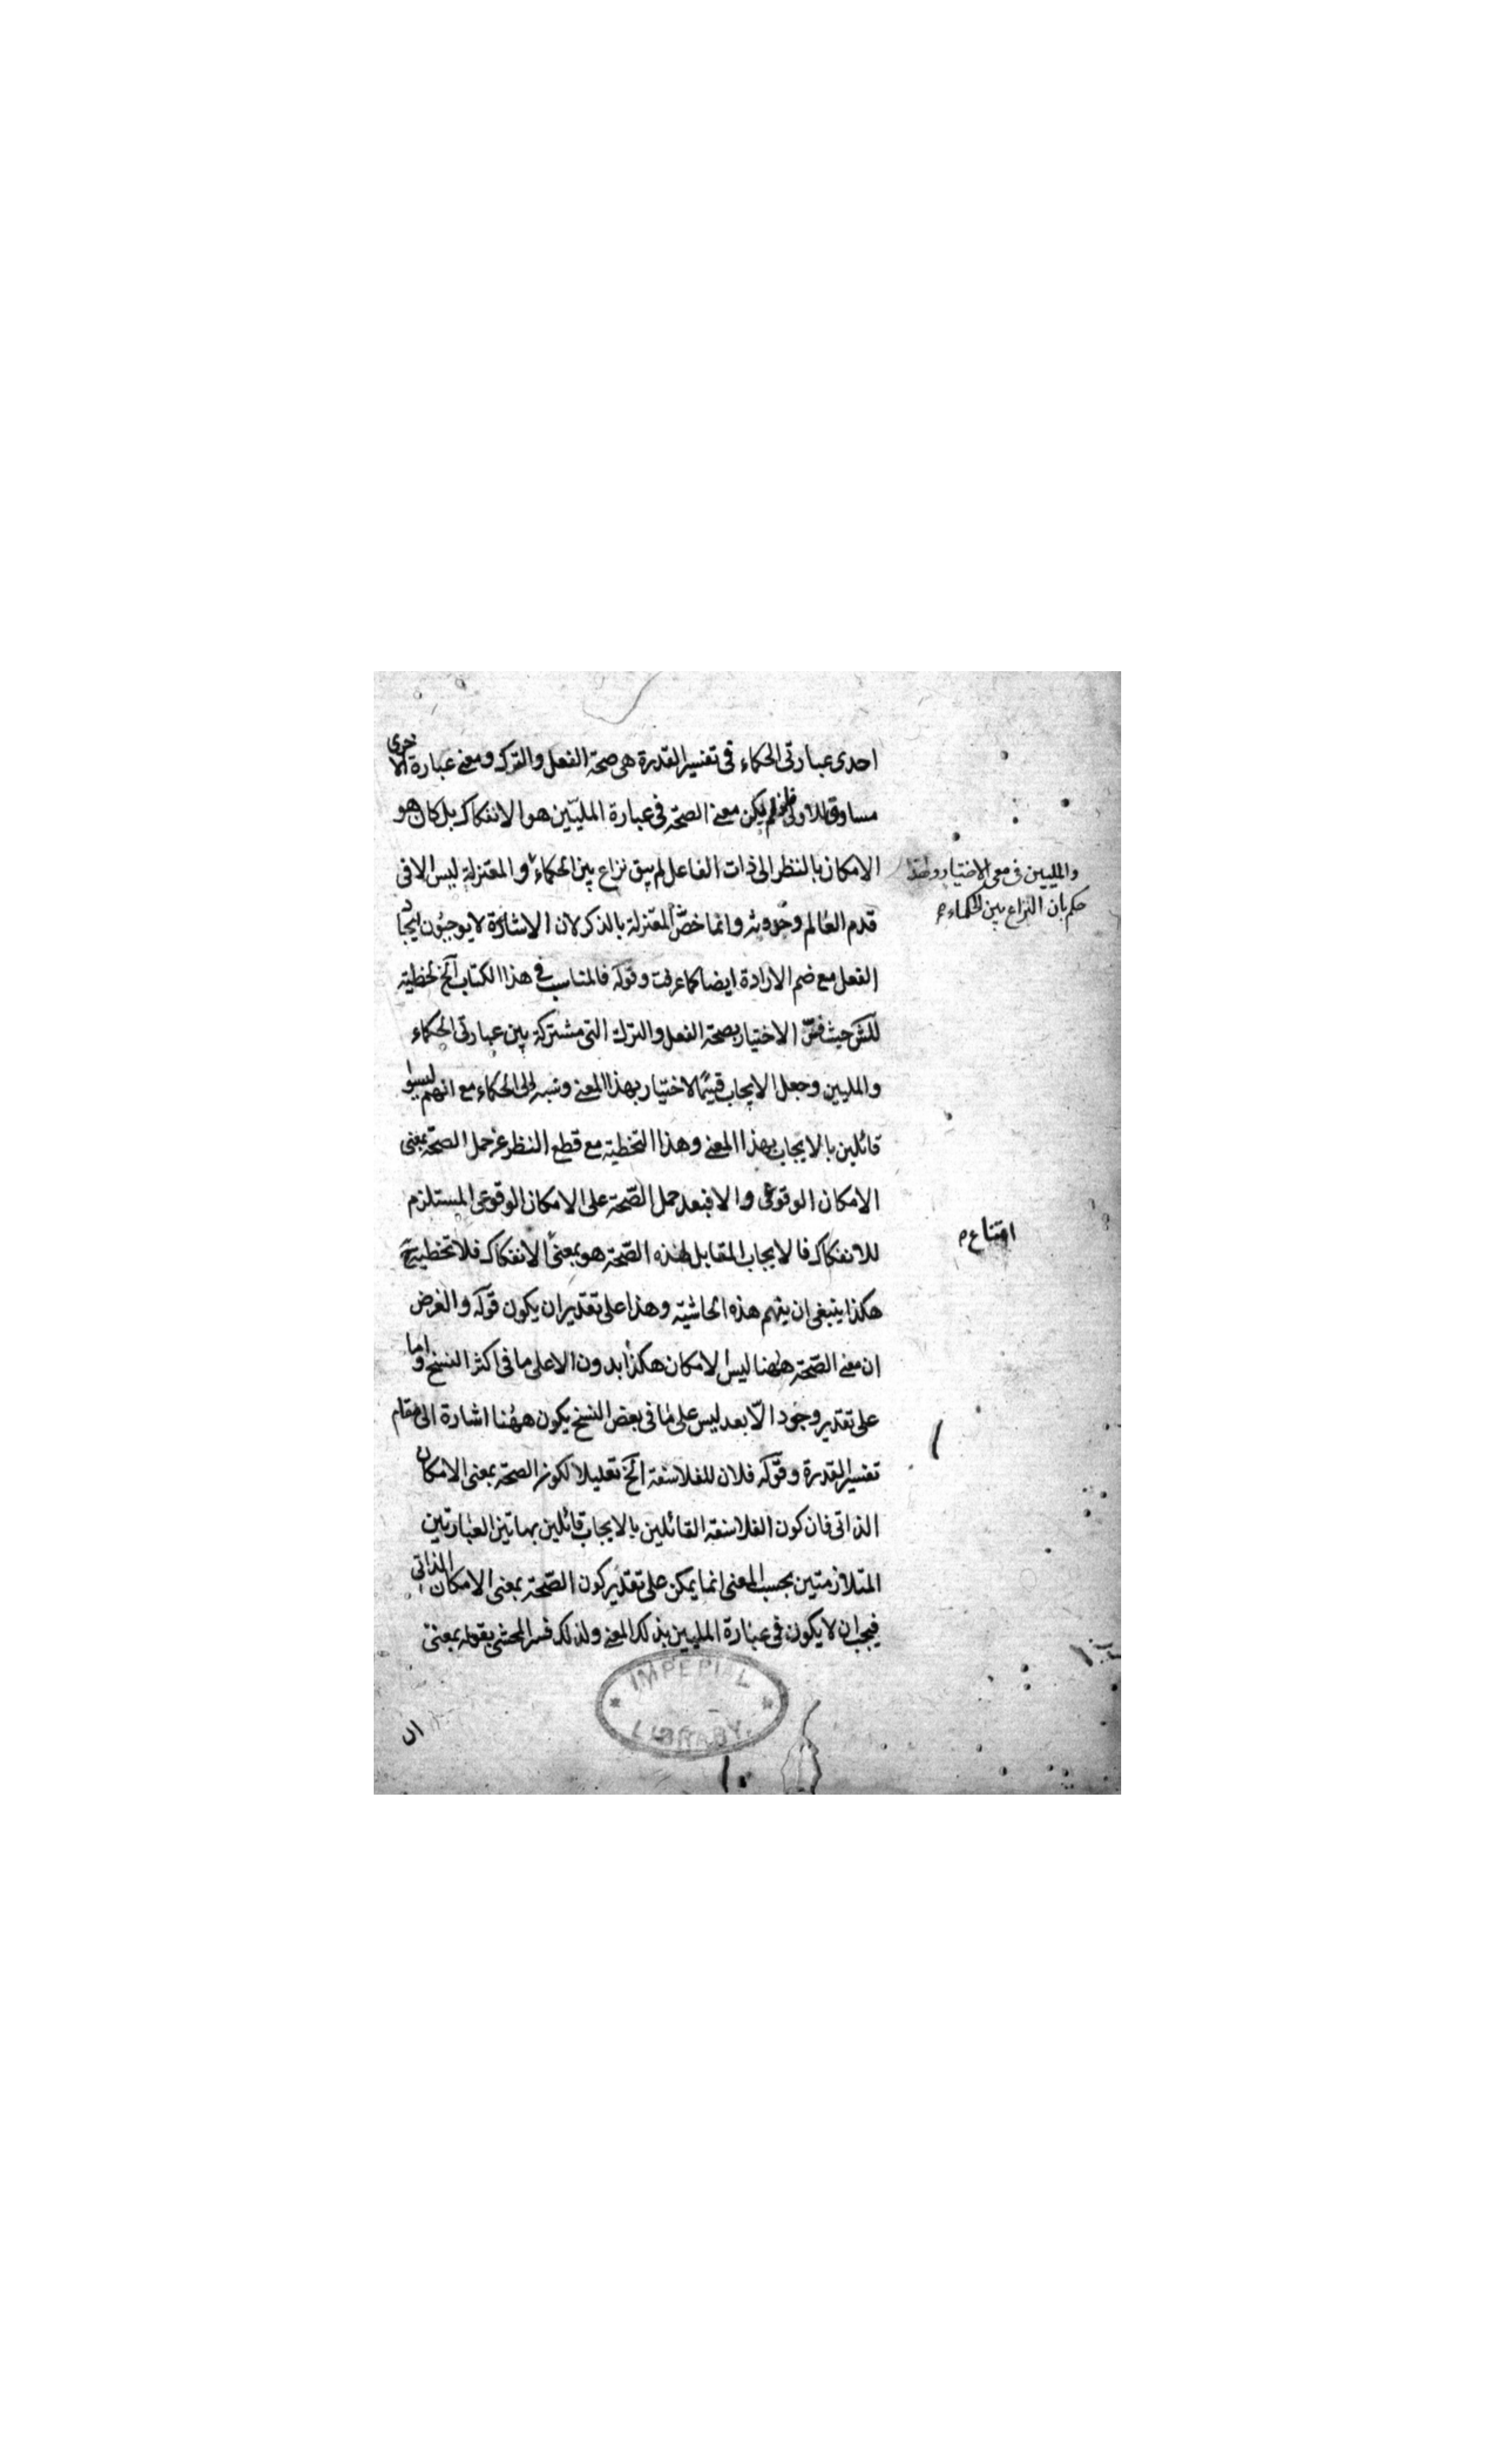 احدى عبارتى الحكماء فى تفسير القدرة هى صحة الفعل والترك ومعنى عبارة الاخرى
مساوق للاولى فلو لم يكن معنى الصحة فى عبارة المليين هو الانفكاك بل كان هو
الامكان بالنظر الى ذات الفاعل لم يبق نزاع بين الحكماء و المعتزلة ليس الا فى
قدم العالم وحدوثه وانما خص المعتزلة بالذكر لان الاشاعرة لا يوجبون ايجاد
الفعل مع ضم الارادة ايضا كما عرفت وقوله فالمناسب فى هذا الكتاب الخ تخطية
للش حيث فسر الاختيار بصحة الفعل والترك التى مشتركة بين عبارتى الحكماء
والمليين وجعل الايجاب قسيما لاختيار بهذا المعنى ونسبه الى الحكماء مع انهم ليسوا
قائلين بالايجاب بهذا المعنى وهذا التخطية مع قطع النظر عن حمل الصحة بمعنى
الامكان الوقوعى والا فبعد حمل الصحة على الامكان الوقوعى المستلزم
للانفكاك فالايجاب المقابل لهذه الصحة هو بمعنى الانفكاك فلا تخطية ح
هكذا ينبغى ان يفهم هذه الحاشية وهذا على تقدير ان يكون قوله والغرض
ان معنى الصحة ههنا ليس الامكان هكذا بدون الا على ما فى اكثر النسخ واما
على تقدير وجود الا بعد ليس على ما فى بعض النسخ يكون ههنا اشارة الى مقام
تفسير القدرة وقوله فلان للفلاسفة الخ تعليلا لكون الصحة بمعنى الامكان
الذاتى فان كون الفلاسفة القائلين بالايجاب قائلين بهاتين العبارتين
المتلازمتين بحسب المعنى انما يمكن على تقدير كون الصحة بمعنى الامكان الذاتى
فيجب ان لا يكون فى عبارة المليين بذلك المعنى ولذلك فسر المحشى بقوله بمعنى
ان
والمليين فى معنى الاختيار ولهذا
حكم بان النزاع بين الحكماء
امتناع
IMPERIAL
LIBRARY.